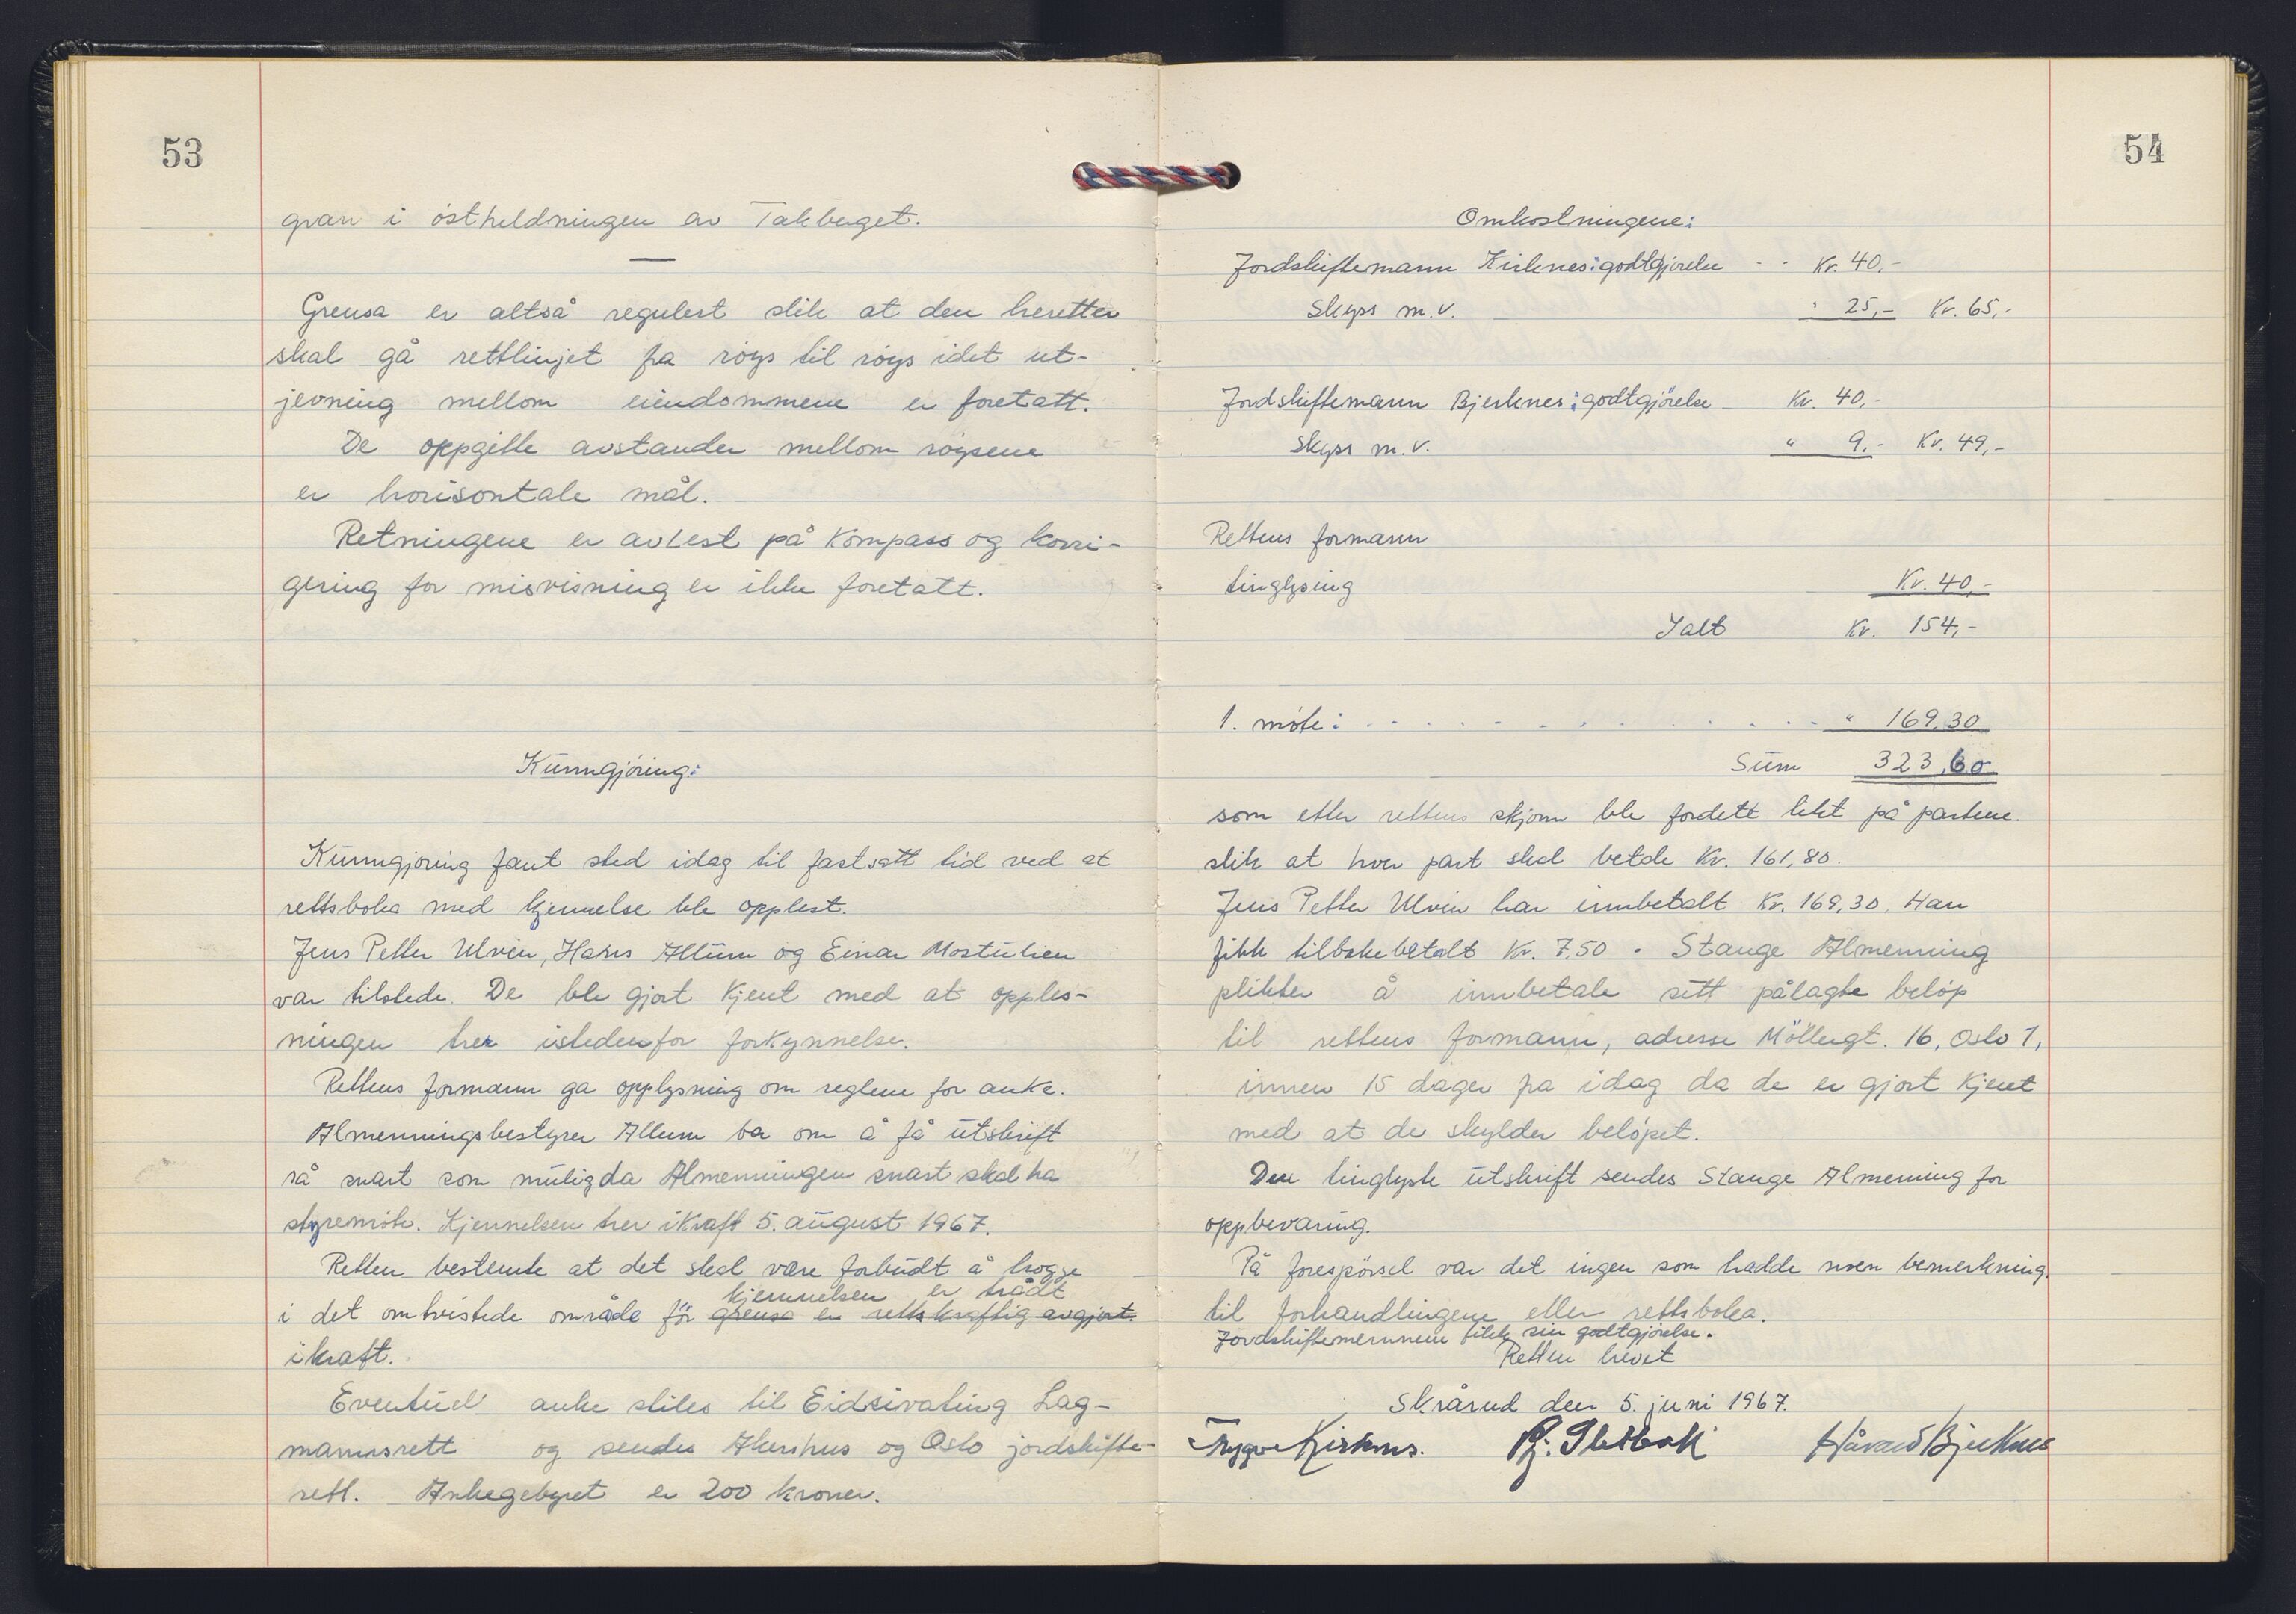 53
gran i östheldningen av Takberget.
Grensa er altså regulert slik at den heretter
skal gå rettlinjet fra röys til röys idet ut-
jevning mellom eiendommene er foretatt.
De oppgitte avstander mellom röysene
er horisontale mål.
Retningene er avlest på kompass og korri-
gering for misvisning er ikke foretatt.
Kunngjöring:
Kunngjöring fant sted idag til fastsatt tid ved at
rettsboka med kjennelse ble opplest.
Jens Petter Ulvin, Hans Allum og Einar Mostulien
var tilstede. De ble gjort kjent med at opples-
ningen trer istedenfor forkynnelse.
Rettens formann ga opplysning om reglene for anke.
Almenningsbestyrer Allum ba om å få utskrift
så snart som mulig da Almenningen snart skal ha
styremöte. Kjennelsen trer i kraft 5. august 1967.
Retten bestemte at det skal være forbudt å hogge
kjennelsen er trådt
i det omtvistede område för grensa er rettskraftig avgjort.
i kraft.
Eventuell anke stiles til Eidsivating Lag-
mannsrett og sendes Akershus og Oslo jordskifte-
rett. Ankegebyret er 200 kroner.
54
Omkostningene:
Jordskiftemann Kirknes: godtgjörelse - - Kr. 40,-
Skyss m.v. " 25,- Kr. 65,-
Jordskiftemann Bjerknes: godtgjörelse Kr. 40,-
Skyss m.v. " 9,- Kr. 49,-
Rettens formann
tinglysing Kr. 40,-
Ialt Kr. 154,-
1. möte: . . . . . . . . . . . . " 169,30
Sum 323,60
som etter rettens skjönn ble fordelt likt på partene.
slik at hver part skal betale Kr. 161,80.
Jens Petter Ulvin har innbetalt Kr. 169,30. Han
fikk tilbakebetalt Kr. 7,50. Stange Almenning
plikter å innbetale sitt pålagte belöp
til rettens formann, adresse Möllergt. 16, Oslo 1,
innen 15 dager fra idag da de er gjort kjent
med at de skylder belöpet.
Den tinglyste utskrift sendes Stange Almenning for
oppbevaring.
På forespörsel var det ingen som hadde noen bemerkning
til forhandlingene eller rettsboka.
Jordskiftemennene fikk sin godtgjörelse.
Retten hevet
Skrårud den 5. juni 1967.
Trygve Kirknes. Håvard Bjerknes